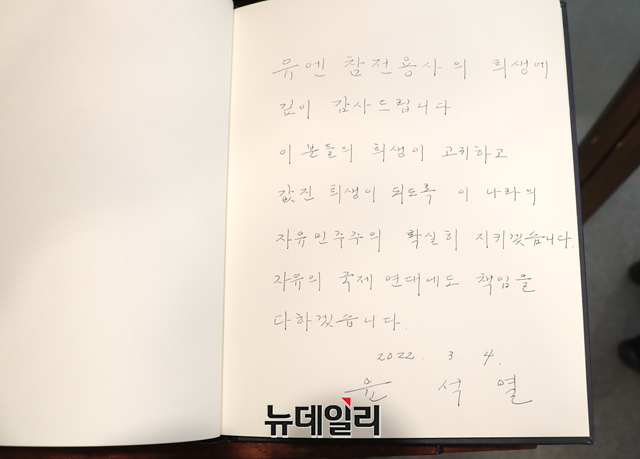 유엔 참전용사의 희생에
깊이 감사드립니다
이 분들의 희생이 고귀하고
값진 희생이 되도록 이 나라의
자유민주주의 확실히 지키겠습니다.
자유의 국제 연대에도 책임을
다하겠습니다.
2022. 3. 4.
윤 석 열
뉴데일리